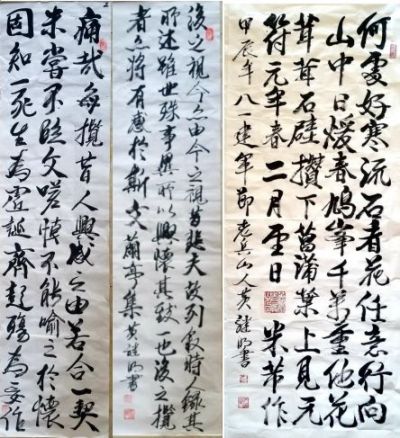 痛哉每攬昔人興感之由若合一契
未嘗不臨文嗟悼不能喻之於懷
固知一死生為虛誕齊彭殤為妄作
後之視今亦由今之視昔悲夫故列敘時人錄其
所述雖世殊事異所以興懷其致一也後之攬
者亦將有感於斯文蘭亭集 黃 明書
何處好寒流石者花任意行向
山中日煖春鳩峯千萬重他花
茸茸石壁攢下菖蒲葉上見元
符元年春二月 日 米芾作
甲辰年八一建軍節老兵山人黃 明書